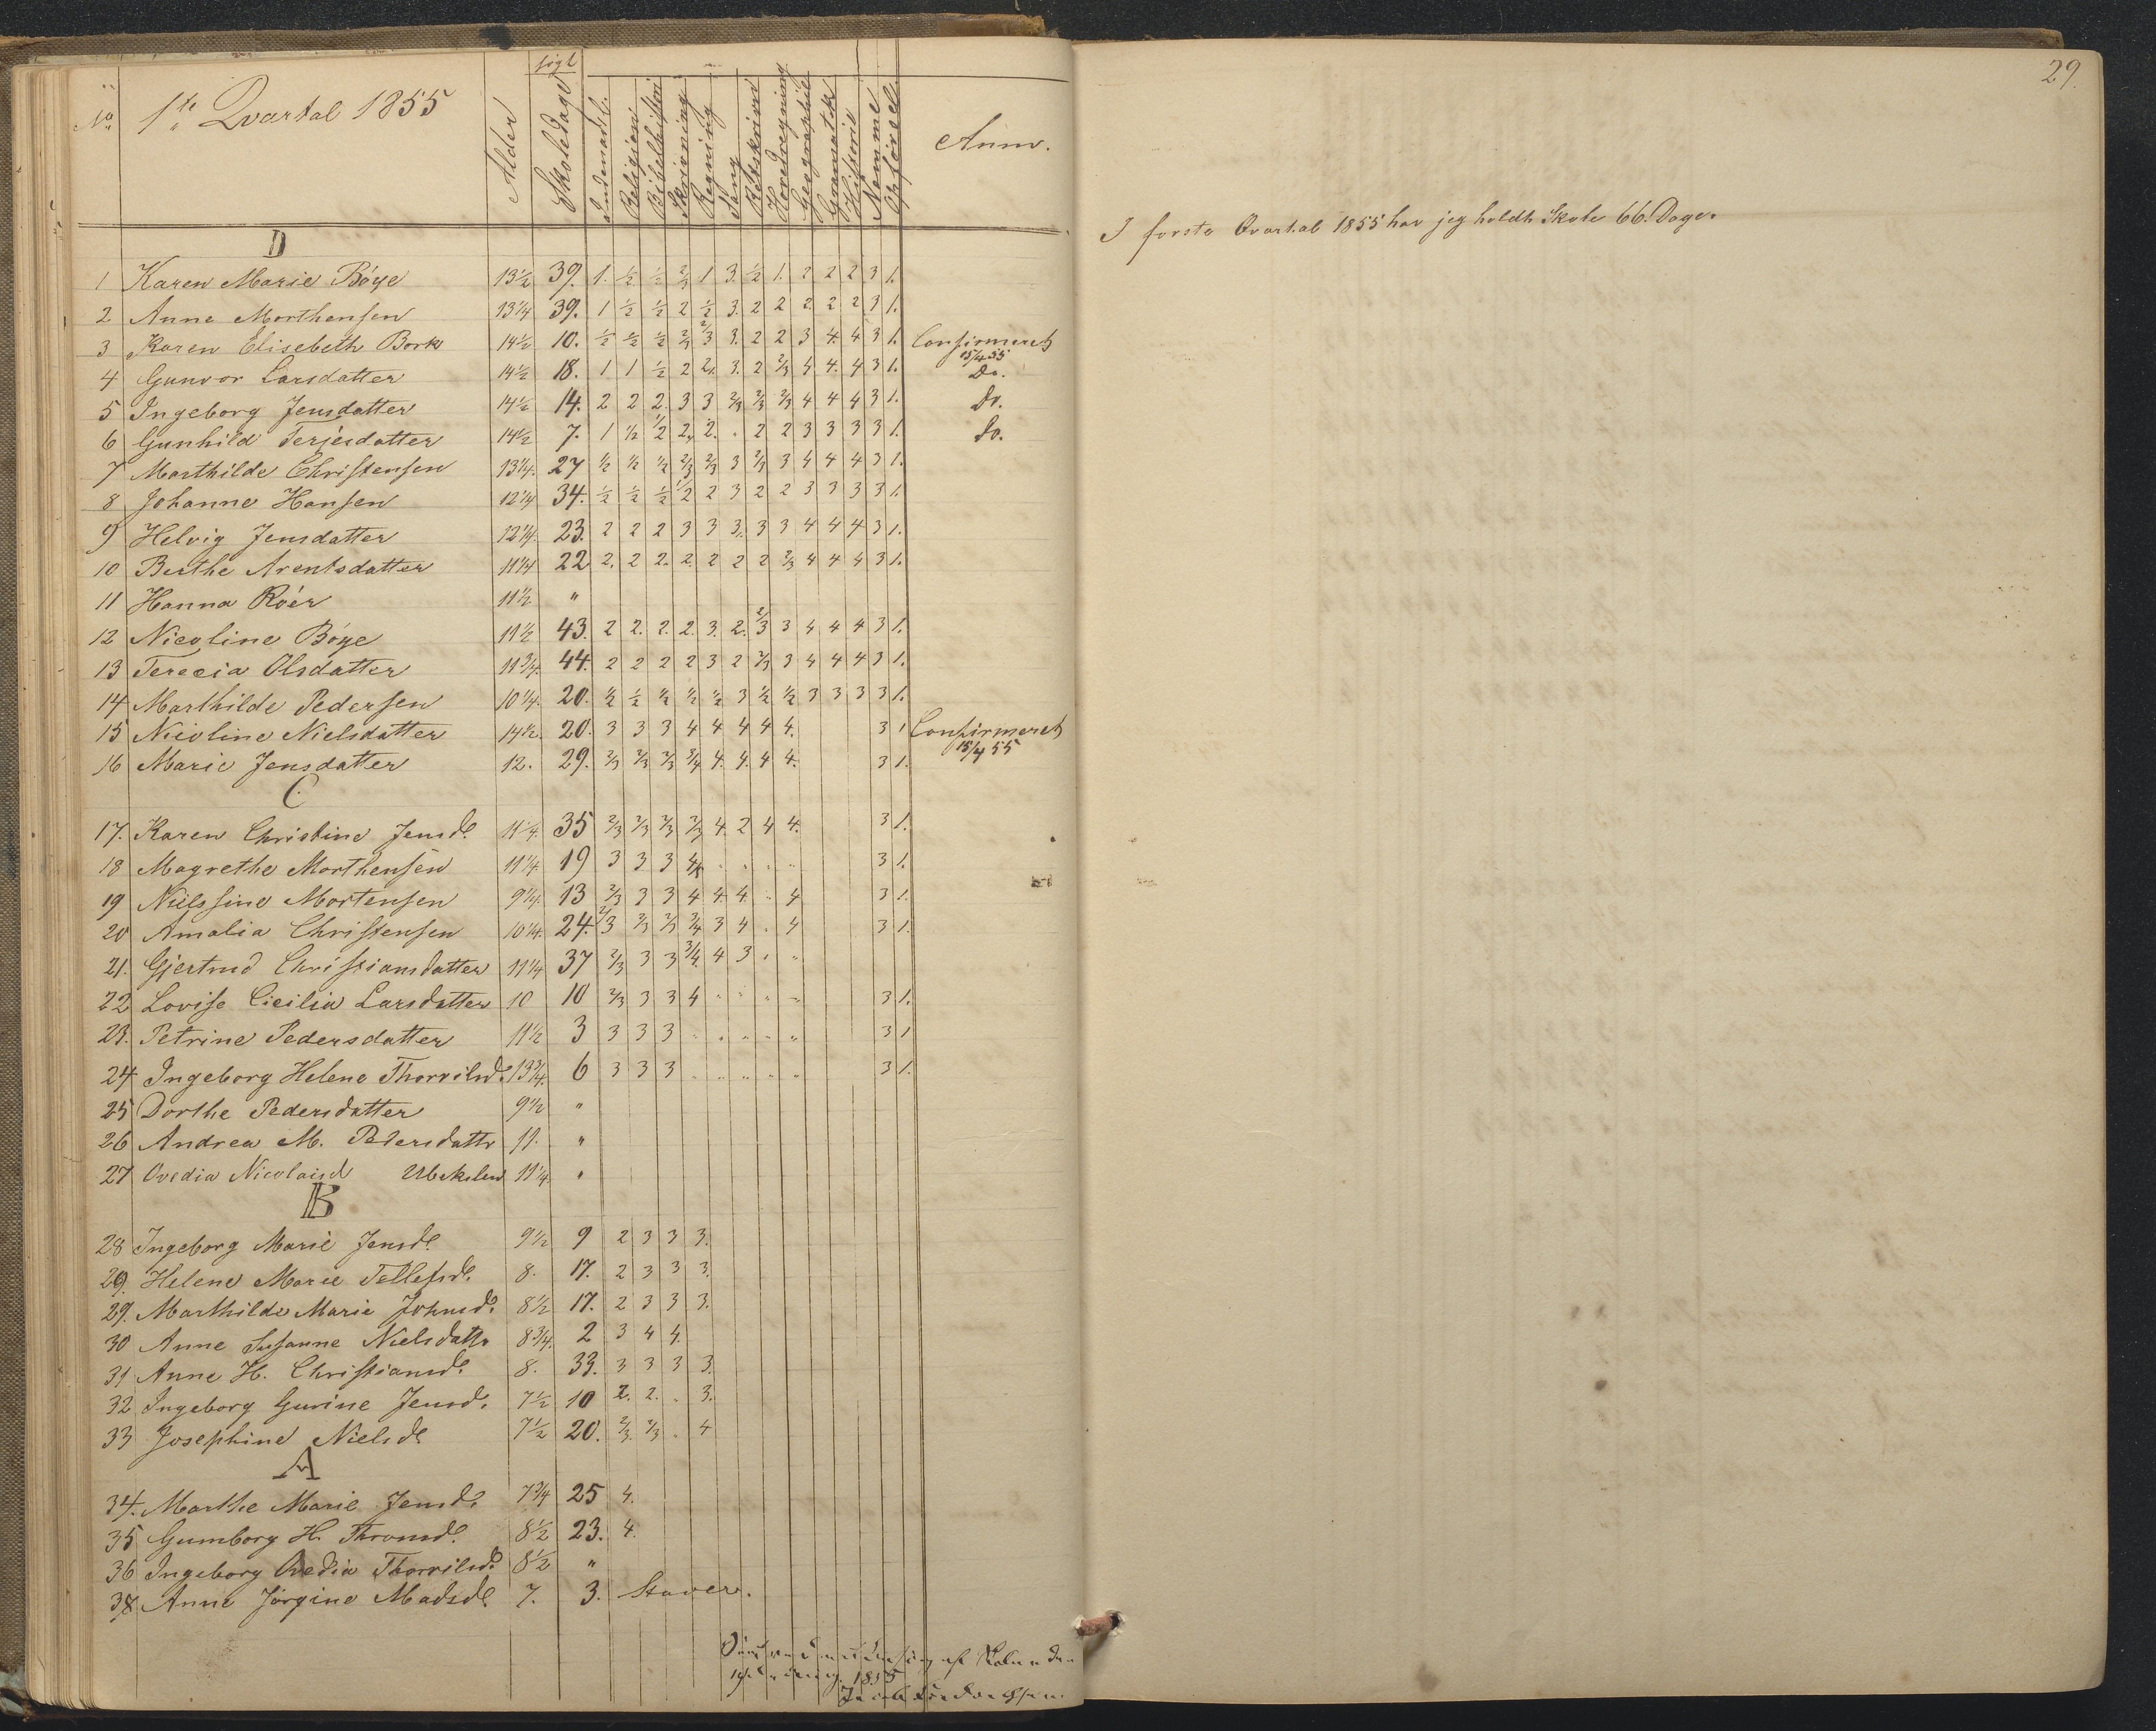 29.
No 1ste Qvartal 1855 Alder søgt Skoledage Indenadl. Religion Bibelhistori Skrivning Regning Sang Retskrivn Hovedregning Geographie Gramatik Historie Nemme Opførsel Anm.
I første Qvartal 1855 har jeg holdt Skole 66. Dage.
D
1 Karen Marie Bøye 13½ 39. 1. ½ ½ 2/3 1 3. ½ 1. 2 2 2 3 1.
2 Anne Morthensen 13¼ 39. 1 ½ ½ 2 ½ 3. 2 2 2. 2 2 3 1.
3 Karen Elisebeth Bork 14½ 10. ½ ½ ½ 2/3 2/3 3. 2 2 3 4. 4 3 1. Confirmeret 15/4 55
4 Gunvor Larsdatter 14½ 18. 1 1 ½ 2 2. 3. 2 2/3 4 4. 4 3 1. Do.
5 Ingeborg Jensdatter 14½ 14. 2 2 2. 3 3 2/3 2/3 2/3 4 4 4 3 1. Do.
6 Gunhild Terjesdatter 14½ 7. 1 ½ ½ 2. 2. . 2 2 3 3 3 3 1. Do.
7 Marthilde Christensen 13¼. 27 ½ ½ ½ 2/3 2/3 3 2/3 3 4 4 4 3 1.
8 Johanne Hansen 12¼ 34. ½ ½ ½ ½ 2 3 2 2 3 3 3 3 1.
9 Helvig Jensdatter 12¼. 23. 2 2 2 3 3 3. 3 3 4 4 4 3 1.
10 Berthe Arentsdatter 11¼ 22 2. 2 2. 2. 2 2 2 2/3 4 4 4 3 1.
11 Hanna Röer 11½ "
12 Nicoline Bøye 11½ 43. 2 2. 2. 2. 3. 2. 2/3 3 4 4 4 3 1.
13 Terecia Olsdatter 11¾. 44. 2 2 2 2 3 2 2/3 3 4 4 4 3 1.
14 Marthilde Pedersen 10¼. 20. ½ ½ ½ ½ ½ 3 ½ ½ 3 3 3 3 1.
15 Nicoline Nielsdatter 14½. 20. 3 3 3 4 4 4 4 4. 3 1 Confirmeret 15/4 55
16 Marie Jensdatter 12. 29. 2/3 2/3 2/3 3/4 4. 4. 4 4. 3 1.
C.
17. Karen Christine Jensd. 11¼. 35 2/3 2/3 2/3 2/3 4. 2 4 4. 3 1.
18 Magrethe Morthensen 11¼ 19 3 3 3 4 . . . .. 3 1.
19 Nielssine Mortensen 9¼. 13 2/3 3 3 4 4. 4. .. 4 3 1.
20 Amalia Christensen 10¼. 24. 2/3 2/3 2/3 3/4 3 4 . 4 3 1.
21. Gjertrud Christiansdatter 11¼ 37 2/3 3 3 3/4. 4 3 . ..
22 Lovise Cicilia Larsdatter 10 10 2/3 3 3 4 .. .. .. .. 3 1.
23. Petrine Pedersdatter 11½ 3 3 3 3 .. . .. .. .. 3 1
24 Ingeborg Helene Thorvilsd. 13¾. 6 3 3 3 .. .. .. .. .. 3 1.
25 Dorthe Pedersdatter 9½ "
26 Andrea M. Pedersdattr 11. "
27 Ovedia Nicolaisd 11¼. "
B
28 Ingeborg Marie Jensd. 9½ 9 2 3 3 3.
29. Helene Marie Tellefsd. 8. 17. 2 3 3 3.
29. Marthilde Marie Johnsd. 8½ 17. 2 3 3 3.
30 Anne Susanne Nielsdattr 8¾. 2 3 4 4.
31 Anne H. Christiansd. 8. 33. 3 3 3 3.
32 Ingeborg Gurine Jensd. 7½ 10 2. 2. . 3.
33 Josephine Nielsd. 7½ 20. 2/3. 2/3 . 4
A
34. Marthe Marie Jensd. 7¾ 25 4.
35 Gumborg H. Thromsd. 8½ 23. 4.
36 Ingeborg Ovedia Thorvilsd. 8½ "
38 Anne Jørgine Madsd. 7. 3. Staver.
1855